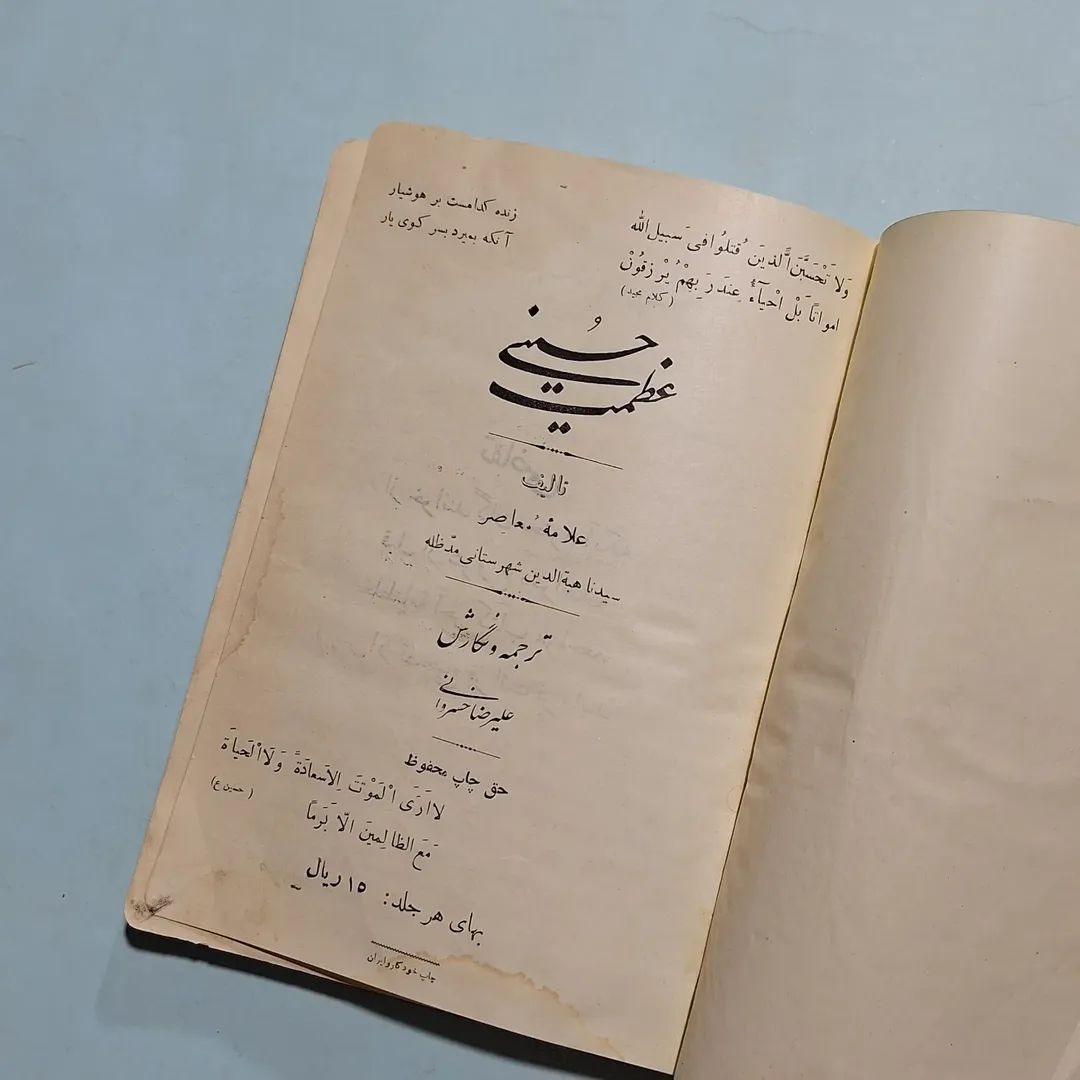 وَلاَ تَحْسَبَنَّ الَّذينَ قُتلُوا فی سَبيل الله
امواتاً بَلْ اَحْيآءٌ عِندَ رَبِهْمُ يْرزقُونْ
(كلام مجيد)
زنده كدامست بر هوشيار
آنكه بميرد بسر كوى يار
عظمت حُسينى
تاليف
علامهٔ مُعاصر
سيدنا هبةالدين شهرستانى مدّظله
ترجمه و نگارش
عليرضا خسروانى
حق چاپ محفوظ
لا اَرَى اْلمَوْتَ اِلاّسَعادَةً وَلاَ اْلحَياةَ
مَعَ الظالِمينَ الّا بَرَماً
(حسين ع)
بهاى هر جلد: ۱۵ ريال
چاپ خودكار و ايران